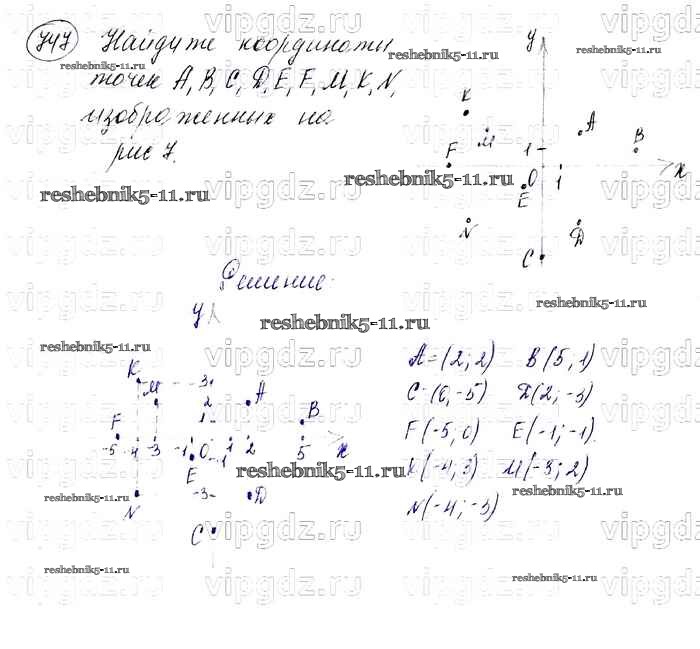 747 Найдите координаты
точек A, B, C, D, E, F, M, K, N,
изображенных на
рис 7.
y
K
M
A
B
F
1
0
1
x
E
N
D
C
Решение:
y
K
M
3
2
A
1
B
F
-5 -4 -3 -1 0 1 2 5 x
E
-1
-3
D
N
C
A=(2; 2) B(5, 1)
C (0, -5) D(2; -3)
F(-5; 0) E(-1; -1).
K(-4; 3) M(-3; 2)
N(-4; -3)
reshebnik5-11.ru
vipgdz.ru